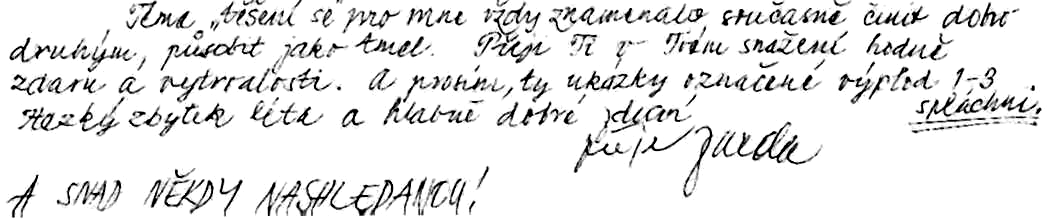 Téma „těšení se" pro mne vždy znamenalo současně činit dobro
druhým, působit jako tmel. Přeji Ti v Tvém snažení hodně
zdaru a vytrvalosti. A prosím, ty ukázky označené výplod 1-3
spláchni.
Hezký zbytek léta a hlavně dobré zdraví
přeje Jarda
A SNAD NĚKDY NASHLEDANOU!